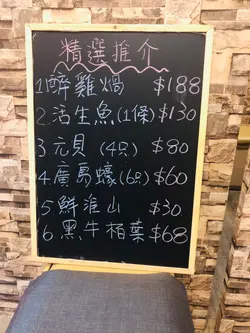 精選推介
1.醉雞煱 $188
2.活生魚(1條) $130
3.元貝 (4只) $80
4.廣島蠔(6只) $60
5鮮淮山 $30
6.黑牛栢葉 $68